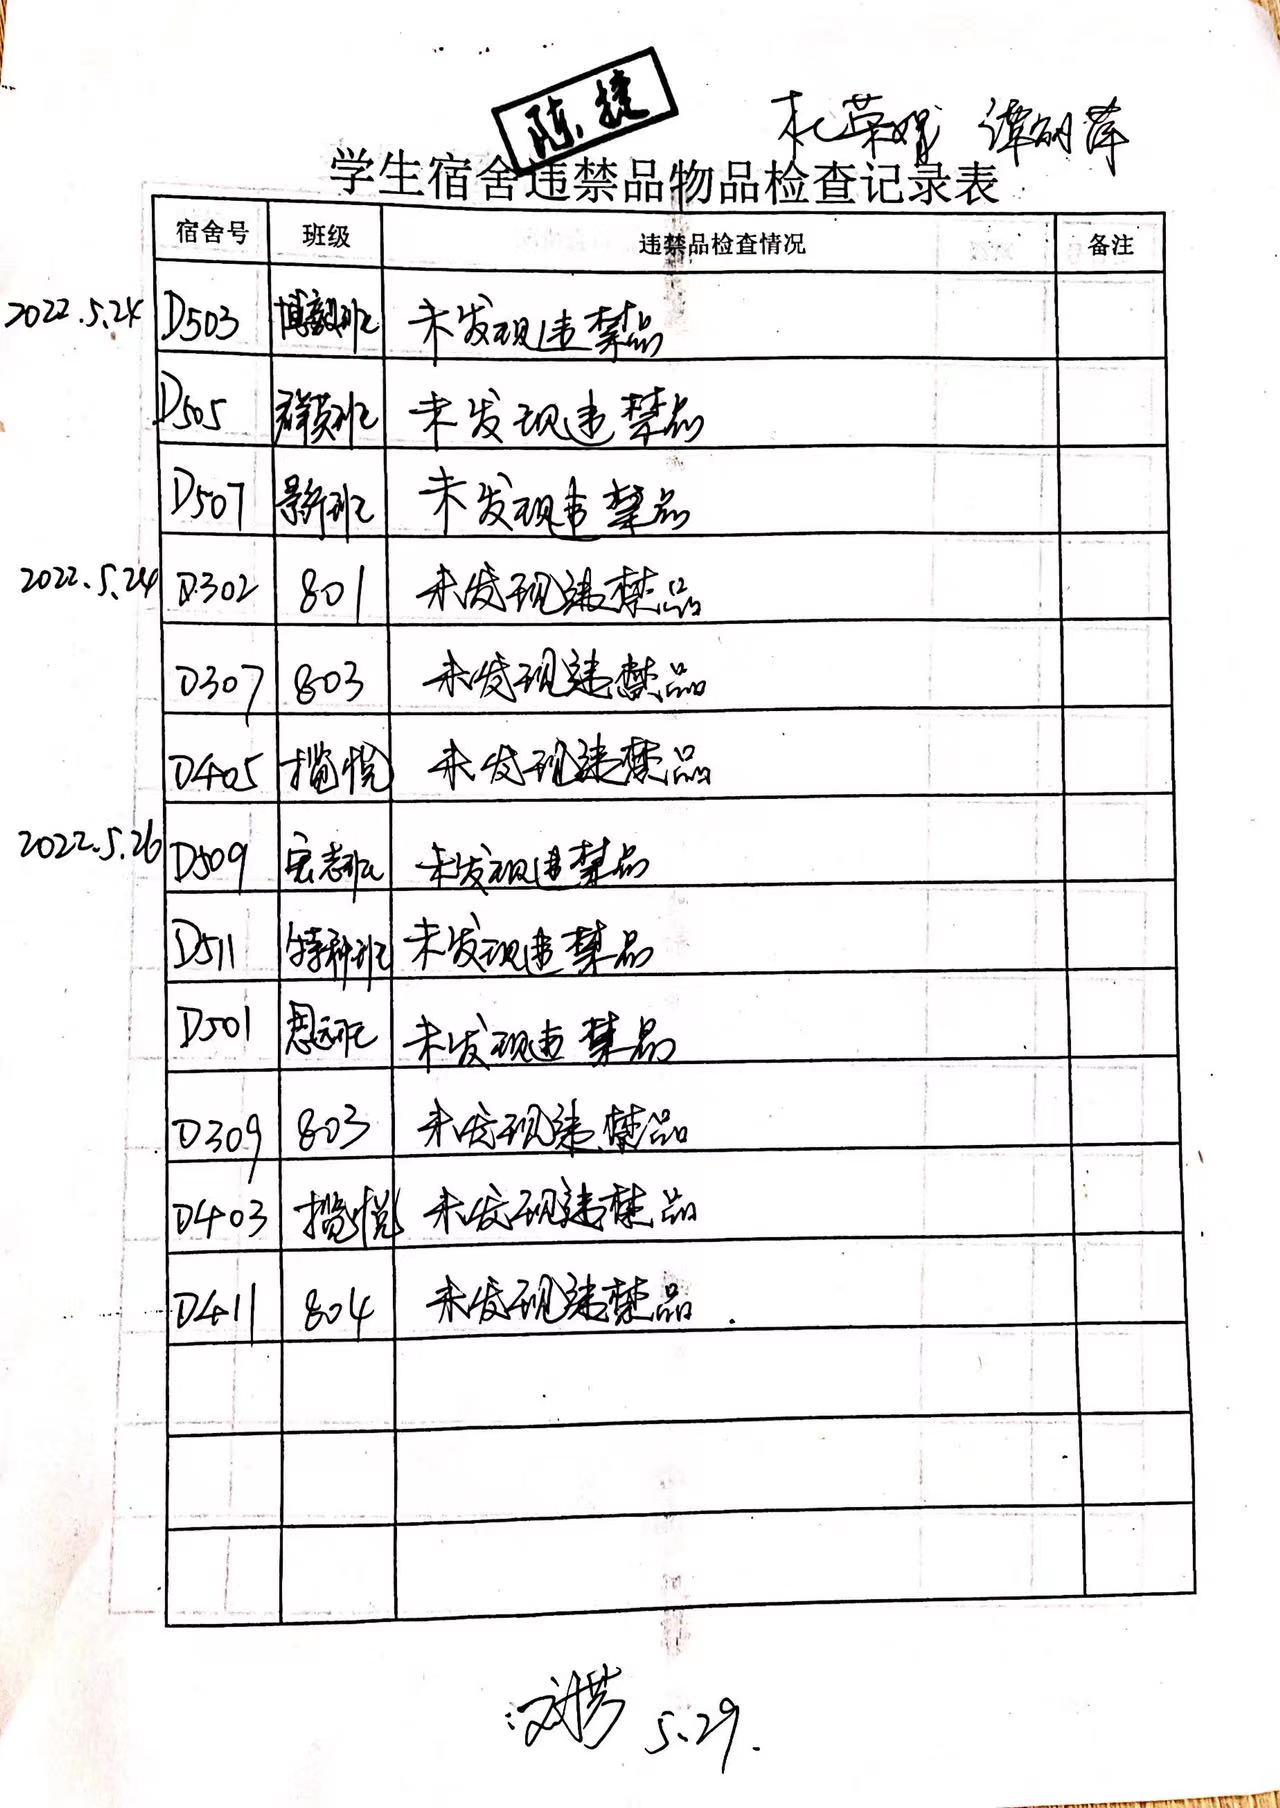 陈捷
杜荣娟 谭丽萍
学生宿舍违禁品物品检查记录表
宿舍号 班级 违禁品检查情况 备注
2022.5.24 D503 博毅班 未发现违禁品
D505 群英班 未发现违禁品
D507 景行班 未发现违禁品
2022.5.24 D302 801 未发现违禁品
D307 803 未发现违禁品
D405 揽悦 未发现违禁品
2022.5.26 D509 宏志班 未发现违禁品
D511 特种班 未发现违禁品
D501 思远班 未发现违禁品
D309 803 未发现违禁品
D403 揽悦 未发现违禁品
D411 804 未发现违禁品.
5.29.